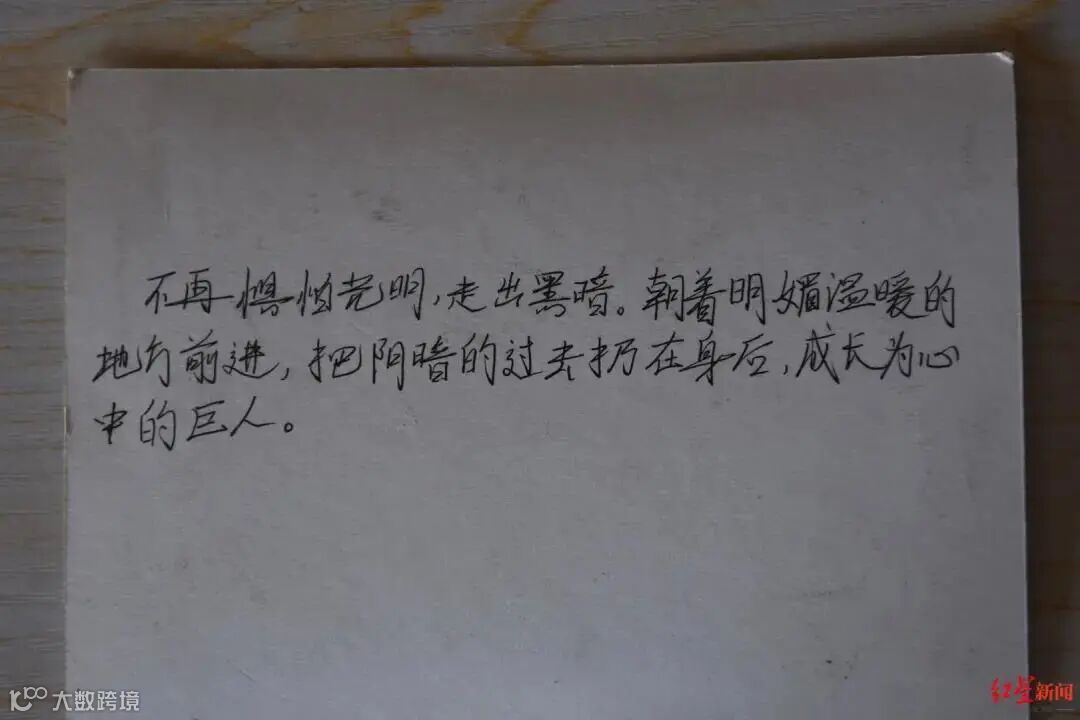 不再惧怕光明，走出黑暗。朝着明媚温暖的
地方前进，把阴暗的过去扔在身后，成长为心
中的巨人。
大数跨境
红星新闻